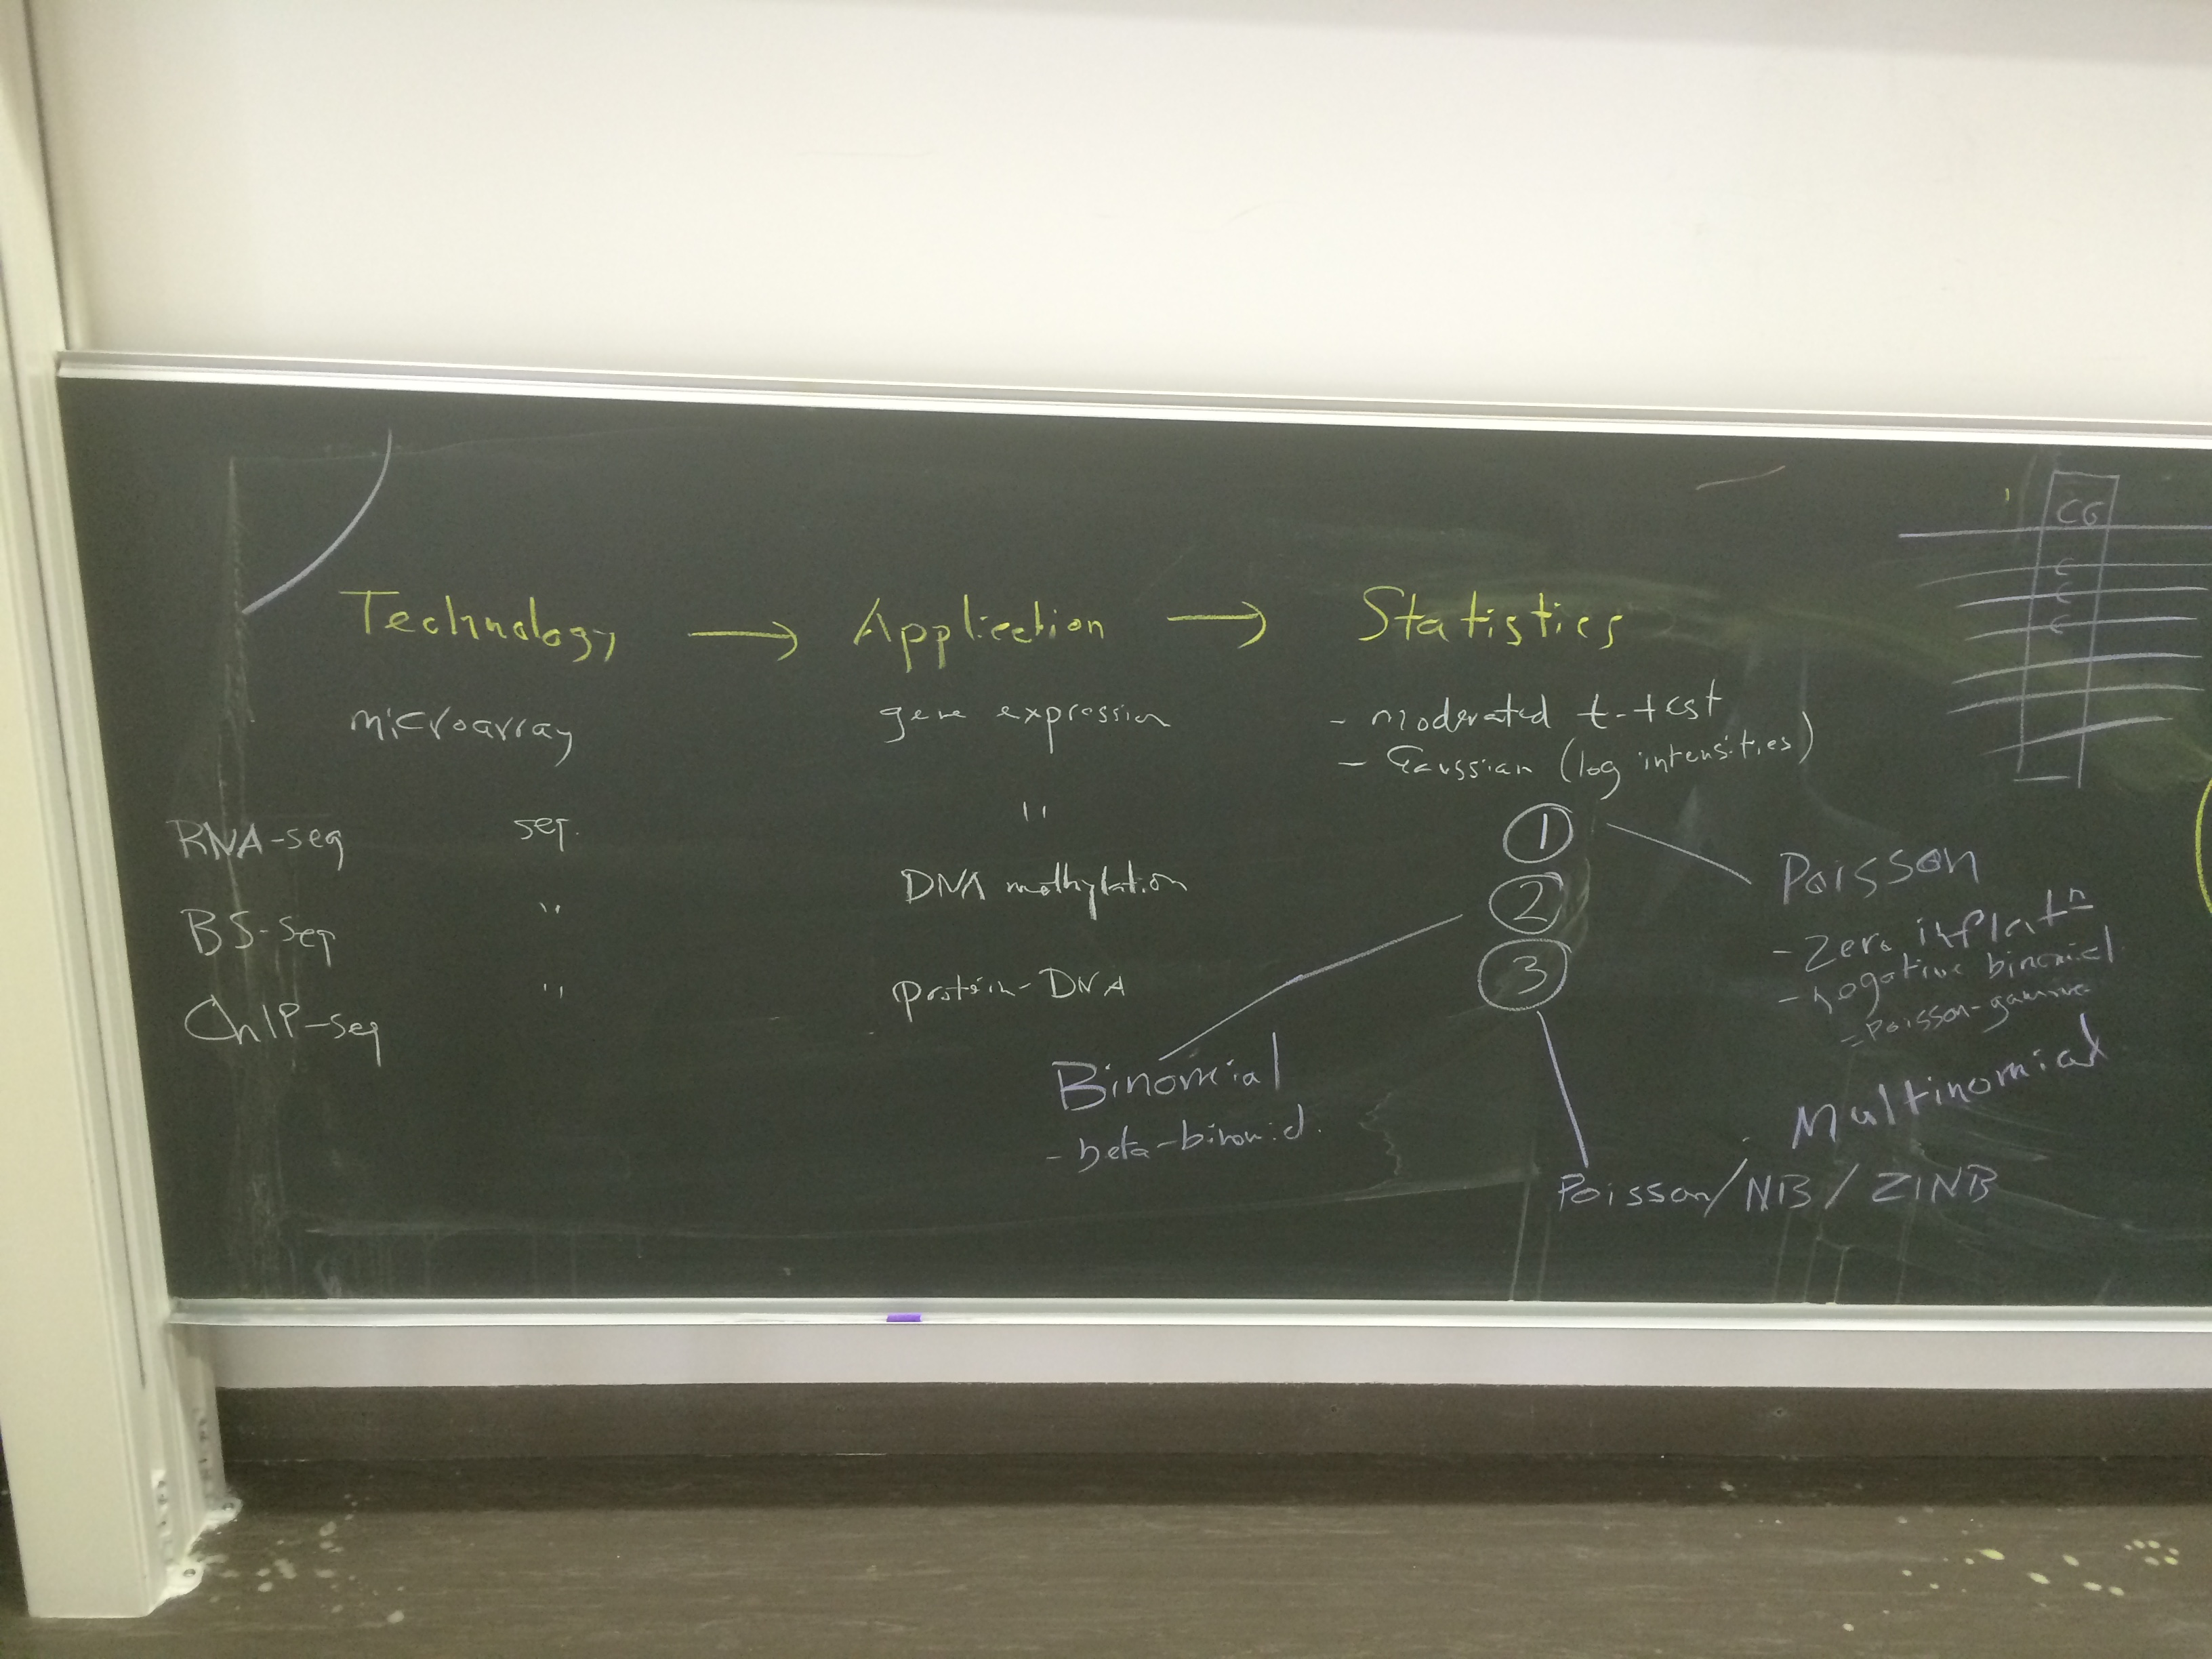 Technology → Application → Statistics
microarray gene expression - moderated t-test
- Gaussian (log intensities)
RNA-seq seq. " ①
BS-seq " DNA methylation ②
ChIP-seq " protein-DNA ③
Poisson
- Zero inflatn
- negative binomial
= Poisson-gamma
Multinomial
Binomial
- beta-binomial.
Poisson/NB/ZINB
CG
C
C
C